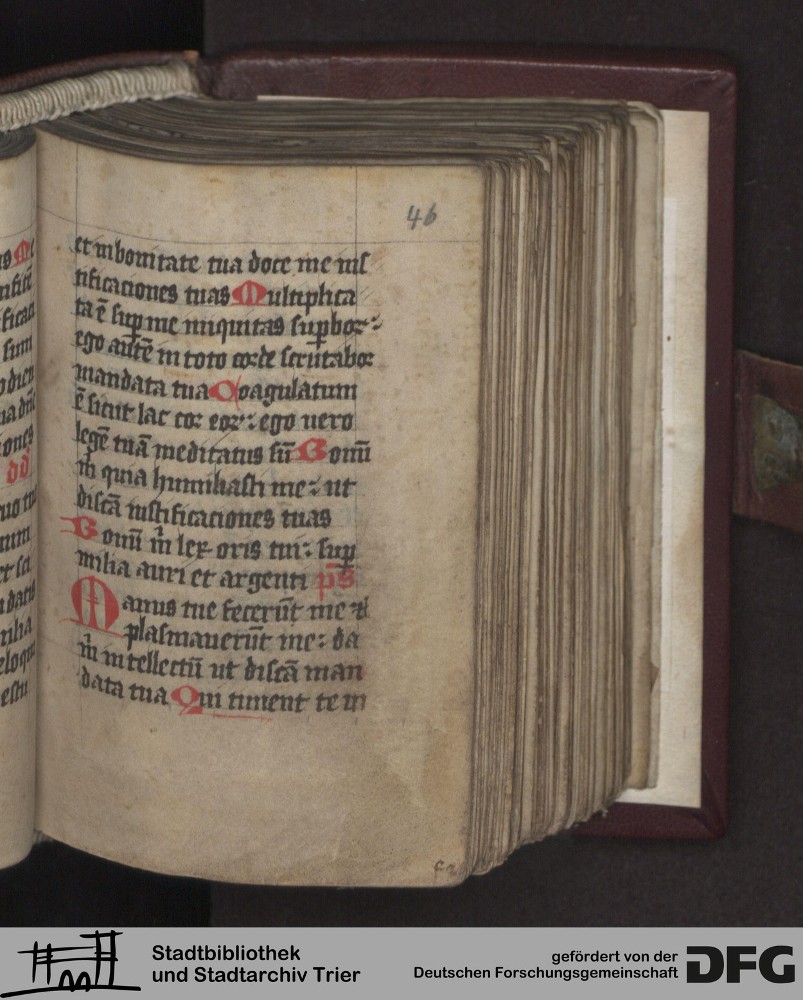 46
et in bonitate tua doce me ius
tificaciones tuas Multiplica
ta ē suꝑ me iniquitas suꝑborꝝ:
ego autē in toto corde scrutabor
mandata tua Coagulatum
ē sicut lac cor eorꝝ: ego uero
legē tuā meditatus sū Bonū
m̄ quia humiliasti me: ut
discā iustificaciones tuas
Bonū m̄ lex oris tui: suꝑ
milia auri et argenti p̄s
Manus tue fecerūt me ⁊
plasmauerūt me: da
m̄ intellectū ut discā man
data tua Qui timent te in
Stadtbibliothek
und Stadtarchiv Trier
gefördert von der
Deutschen Forschungsgemeinschaft
DFG